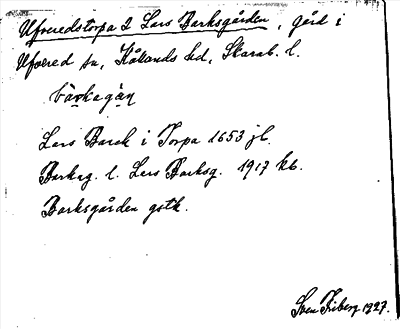 Ufveredstorpa 2 Lars Barksgården, gård i
Ufvered sn, Kållands hd, Skarab. l.
bàrkagàṇ
Lars Barck i Torpa 1653 jb.
Barkag. l. Lars Barksg. 1917 kb.
Barksgården gstk.
Sven Friberg 1927.